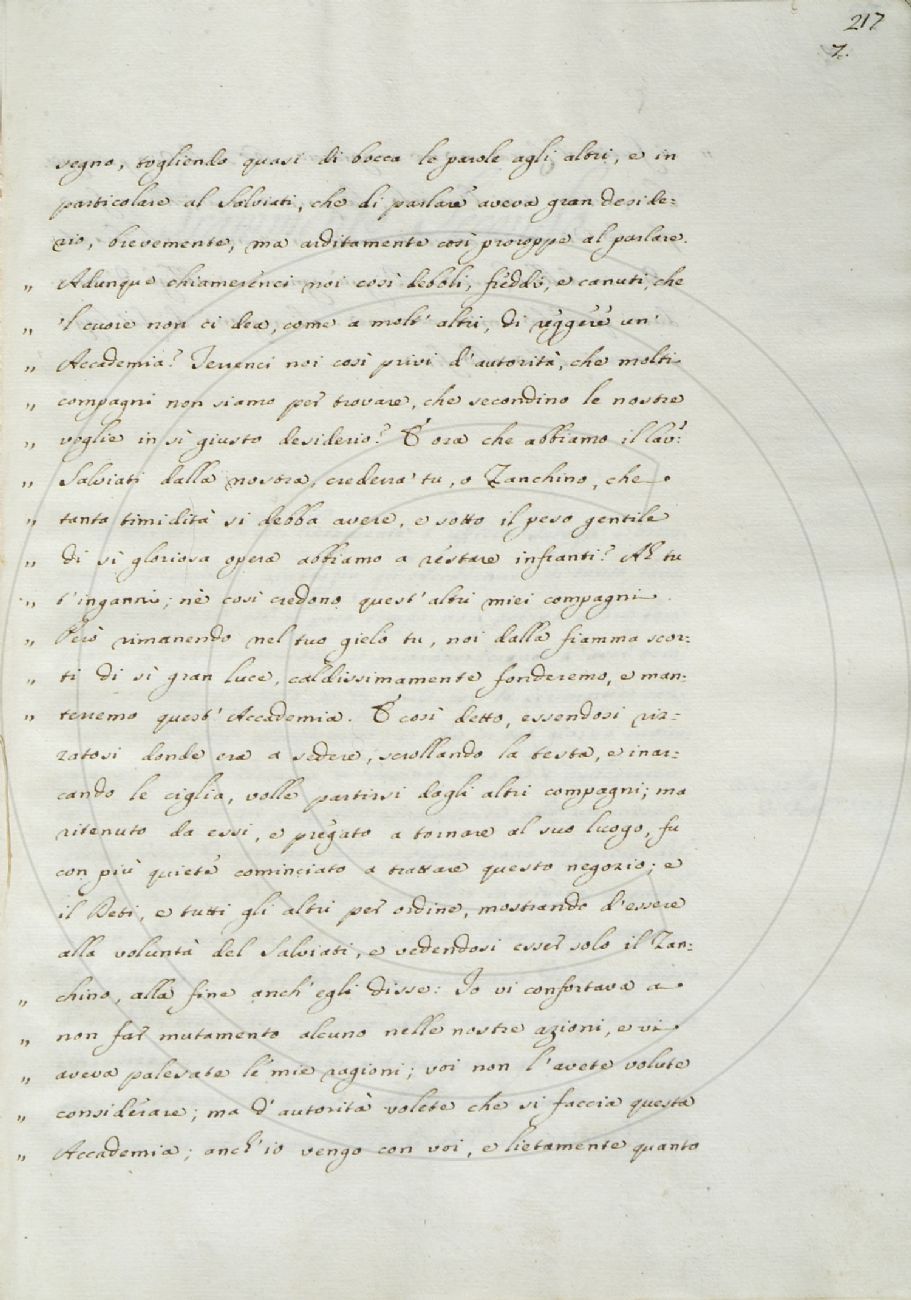 217
7.
segno, togliendo quasi di bocca le parole agli altri, e in
particolare al Salviati, che di parlare aveva gran deside:
rio, brevemente, ma arditamente così proroppe al parlare.
„ Adunque chiamerenci noi così debboli, freddi, e canuti, che
„ 'l cuore non ci dea, come a molt' altri, di reggere un'
„ Accademia? Terrenci noi così privi d'autorità, che molti
„ compagni non siamo per trovare, che secondino le nostre
„ voglie in sì giusto desiderio? E ora che abbiamo il Cav:
„ Salviati dalla nostra, crederra' tu, o Zanchino, che
„ tanta timidità si debba avere, e sotto il peso gentile
„ di sì gloriosa opera abbiamo a restare infranti? Ah tu
„ t'inganni; nè così credono quest' altri miei compagni.
„ Però rimanendo nel tuo gielo tu, noi dalla fiamma scor:
„ ti di sì gran luce, caldissimamente fonderemo, e man:
„ terremo quest' Accademia. E così detto, essendosi riz:
zatosi donde era a sedere, scrollando la testa, e inar:
cando le ciglia, volle partirsi dagli altri compagni; ma
ritenuto da essi, e pregato a tornare al suo luogo, fu
con più quiete cominciato a trattare questo negozio; e
il Deti, e tutti gli altri per ordine, mostrando d'essere
alla voluntà del Salviati, e vedendosi esser solo il Zan:
„ chino, alla fine anch' egli disse: Io vi confortava a
„ non far mutamento alcuno nelle nostre azioni, e vi
„ aveva palesate le mie ragioni; voi non l'avete volute
„ considerare; ma d'autorità volete che si faccia questa
„ Accademia; anch' io vengo con voi, e lietamente quanto